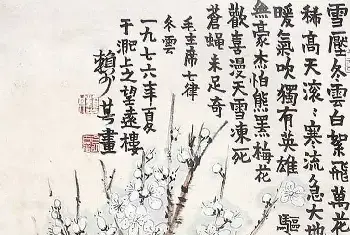 雪壓冬雲白絮飛萬花
稀高天滾〻寒流急大地
暖氣吹獨有英雄驅
無豪杰怕熊羆梅花
歡喜漫天雪凍死
蒼蠅未足奇
毛主席七律
冬雲
一九七六年夏
于淝上之望遠樓
賴少其畫